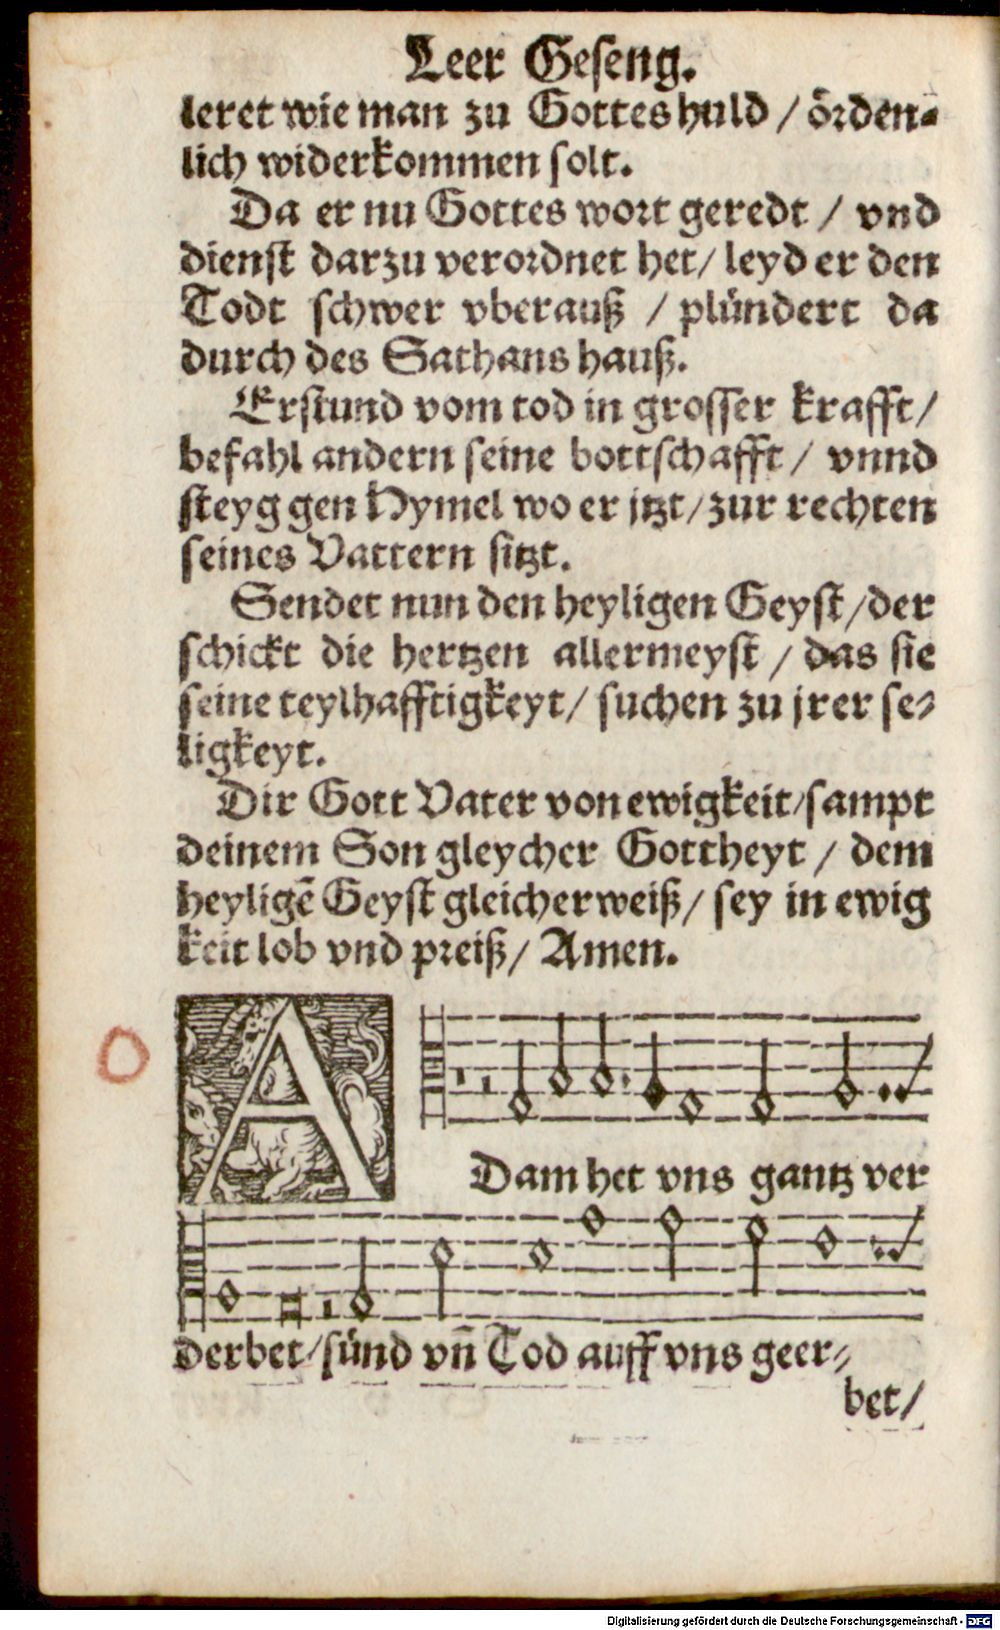 Leer Geseng.
leret wie man zu Gottes huld / örden⸗
lich widerkommen solt.
Da er nu Gottes wort geredt / vnd
dienst darzu verordnet het / leyd er den
Todt schwer vberauß / plündert da
durch des Sathans hauß.
Erstund vom tod in grosser krafft /
befahl andern seine bottschafft / vnnd
steyg gen Hymel wo er jtzt / zur rechten
seines Vattern sitzt.
Sendet nun den heyligen Geyst / der
schickt die hertzen allermeyst / das sie
seine teylhafftigkeyt / suchen zu jrer se⸗
ligkeyt.
Dir Gott Vater von ewigkeit / sampt
deinem Son gleycher Gottheyt / dem
heyligẽ Geyst gleicher weiß / sey in ewig
keit lob vnd preiß / Amen.
ADam het vns gantz ver
derbet / sünd vñ Tod auff vns geer⸗
bet /
Digitalisierung gefördert durch die Deutsche Forschungsgemeinschaft - DFG